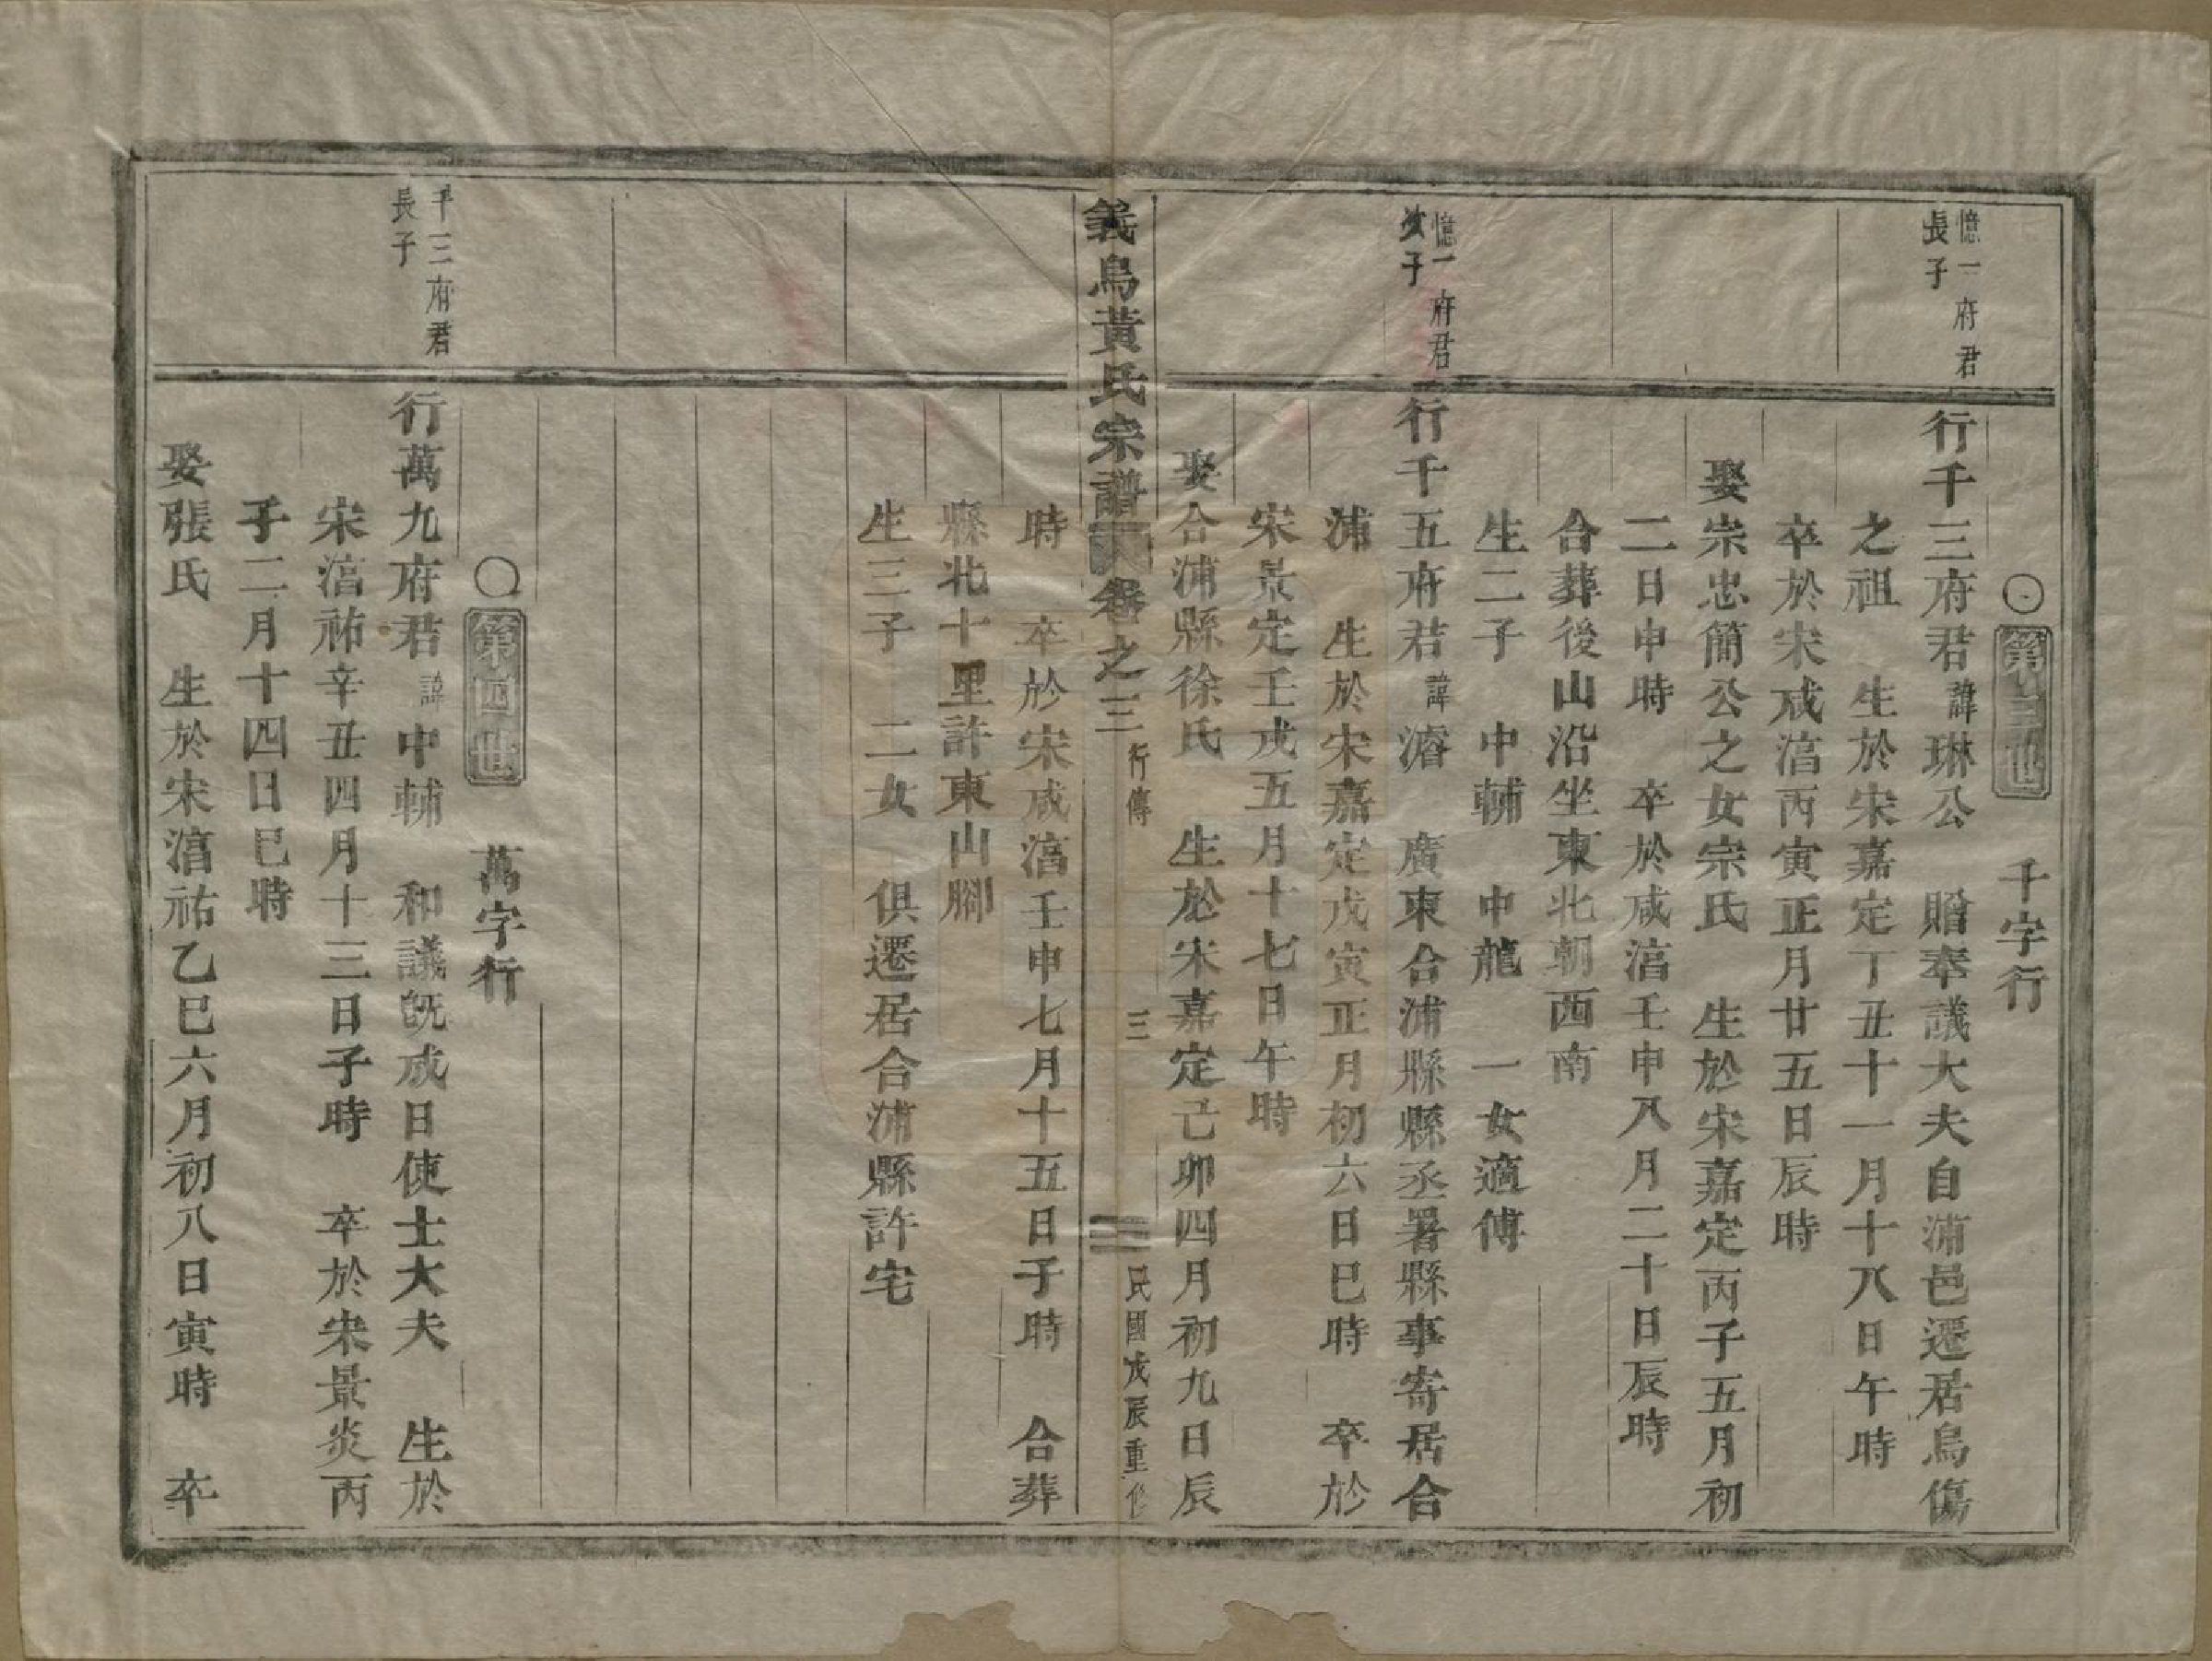 ○第三世 千字行
憶一府君
長子
行千三府君諱琳公 贈奉議大夫自浦邑遷居烏傷
之祖 生於宋嘉定丁丑十一月十八日午時
卒於宋咸淳丙寅正月廿五日辰時
娶宗忠簡公之女宗氏 生於宋嘉定丙子五月初
二日申時 卒於咸淳壬申八月二十日辰時
合葬後山沿坐東北朝西南
生二子 中輔 中龍 一女適傅
憶一府君
次子
行千五府君諱濬 廣東合浦縣縣丞署縣事寄居合
浦 生於宋嘉定戊寅正月初六日巳時 卒於
宋景定壬戌五月十七日午時
娶合浦縣徐氏 生於宋嘉定己卯四月初九日辰
義烏黃氏宗譜 卷之三 行傳 三 民國戊辰重修
時 卒於宋咸淳壬申七月十五日子時 合葬
縣北十里許東山腳
生三子 二女 俱遷居合浦縣許宅
○第四世 萬字行
千三府君
長子
行萬九府君諱中輔 和議旣成日使士大夫 生於
宋淳祐辛丑四月十三日子時 卒於宋景炎丙
子二月十四日巳時
娶張氏 生於宋淳祐乙巳六月初八日寅時 卒